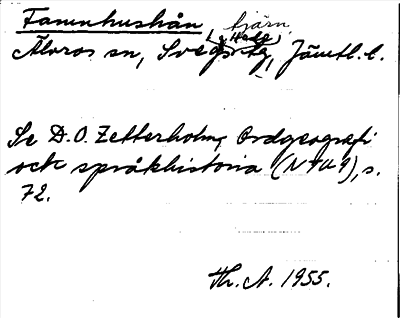 Fanunhushån, tjärn,
Älvros sn, Svegs tg, Jämtl. l.
Se D. O. Zetterholm, Ordgeografi
och språkhistoria (NTU 9), s.
72.
Th. A. 1955.